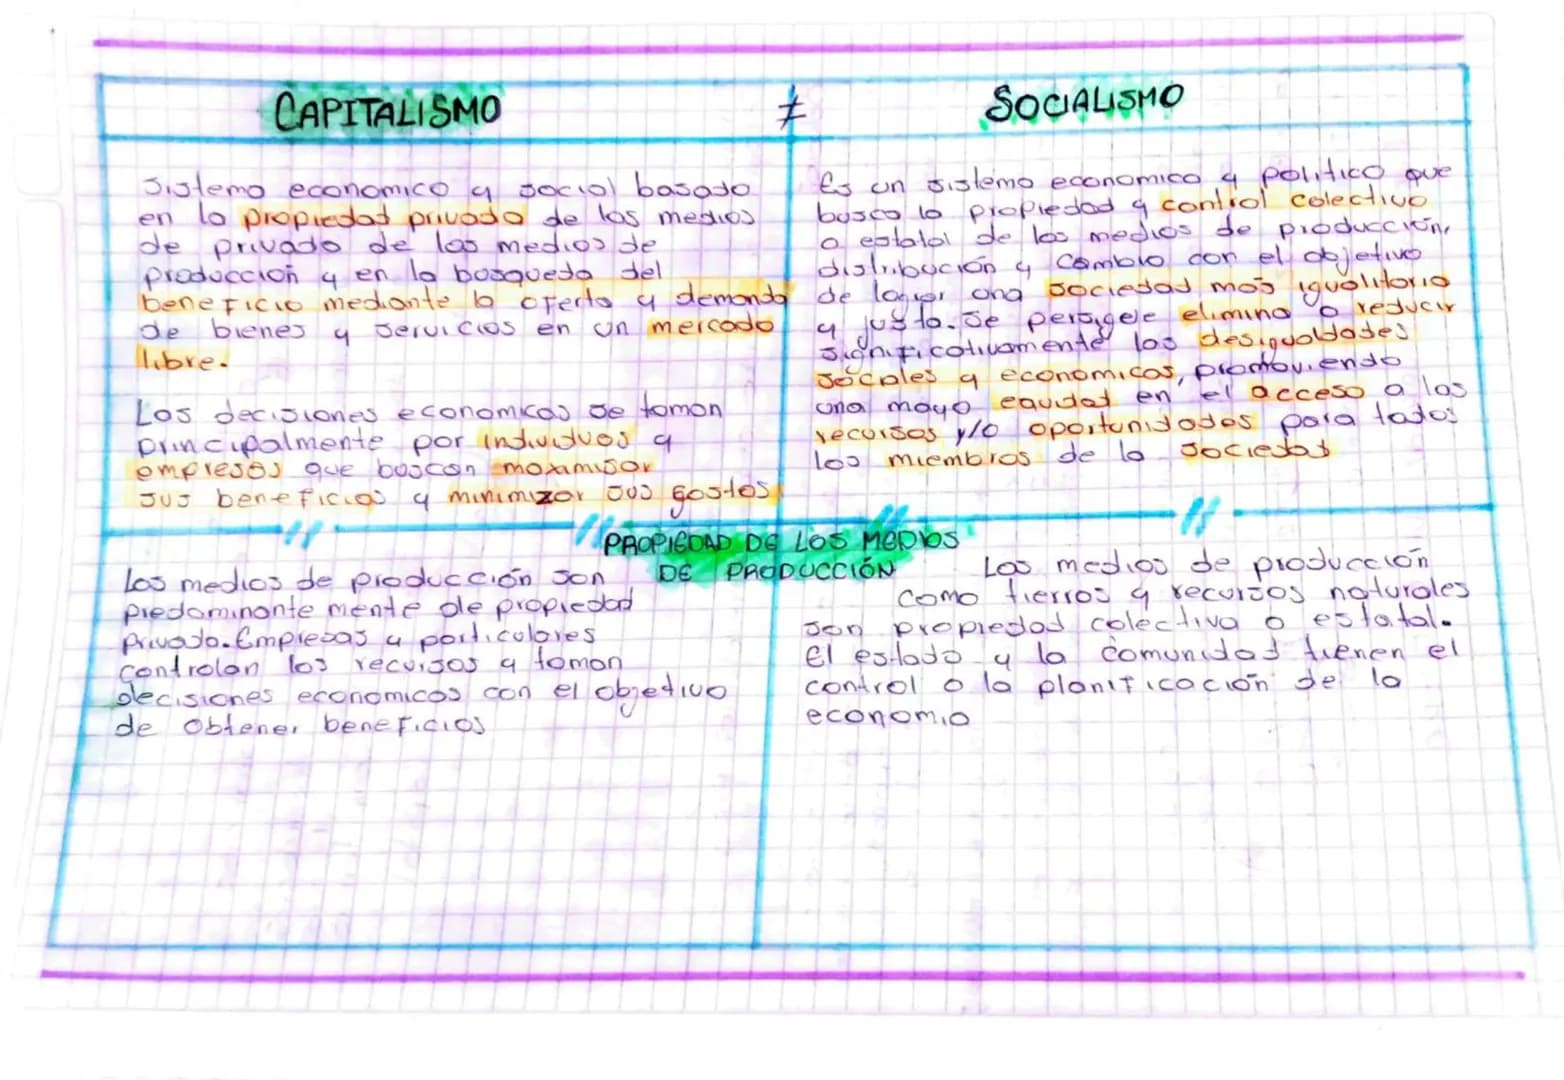 CAPITALISMO ≠ SOCIALISMO
Sistema economico y social basado
en la propiedad privada de los medios
de privado de los medios de
producción y en la busqueda del
beneficio mediante la oferta y demanda
de bienes y servicios en un mercado
libre.
Las decisiones economicas se toman
principalmente por individuos y
empresas que buscan maximisar
sus beneficios y minimizar sus gastos
Es un sistema economico y político que
busca la propiedad y control colectivo
o estatal de los medios de producción,
distribución y cambio con el objetivo
de lograr una sociedad más igualitaria
y justa. Se persigue elimina o reducir
significativamente las desigualdades
sociales y economicas, promoviendo
una mayo equidad en el acceso a los
recursos y/o oportunidades para todos
los miembros de la sociedad
PROPIEDAD DE LOS MEDIOS
DE PRODUCCIÓN
Los medios de producción son
predominante mente de propiedad
privada. Empresas y particulares
controlan los recursos y toman
decisiones economicas con el objetivo
de obtener beneficios
Los medios de producción
como tierras y recursos naturales
son propiedad colectiva o estatal.
El estado y la comunidad tienen el
control o la planificación de la
economia